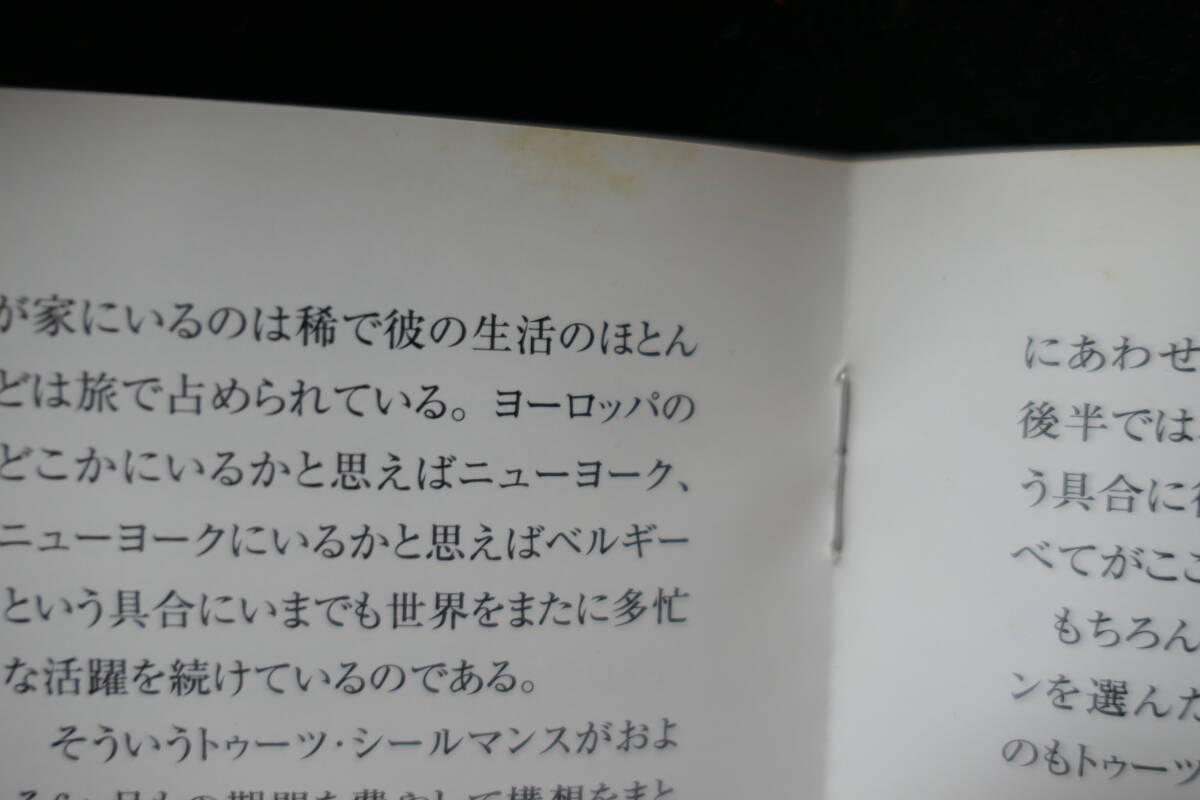 が家にいるのは稀で彼の生活のほとん
どは旅で占められている。ヨーロッパの
どこかにいるかと思えばニューヨーク、
ニューヨークにいるかと思えばベルギー
という具合にいまでも世界をまたに多忙
な活躍を続けているのである。
そういうトゥーツ・シールマンスがおよ
月もの期間を費やして構想をまと
にあわせ
後半では
う具合に
べてがここ
もちろん
ンを選んだ
のもトゥーツ